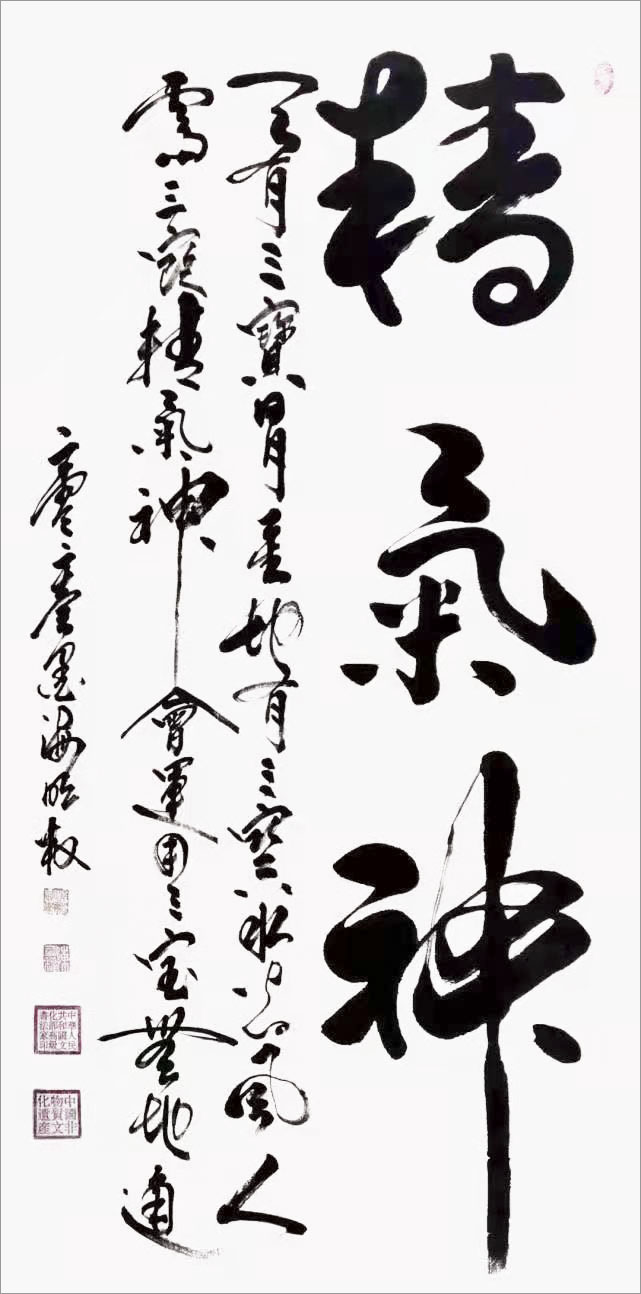 精氣神
天有三寶日月星地有三寶水火風人
需三寶精氣神會運用三宝地通
二零二墨海
中華人民
共和國文
化部高級
書法家印
中國非
物質文
化遺產